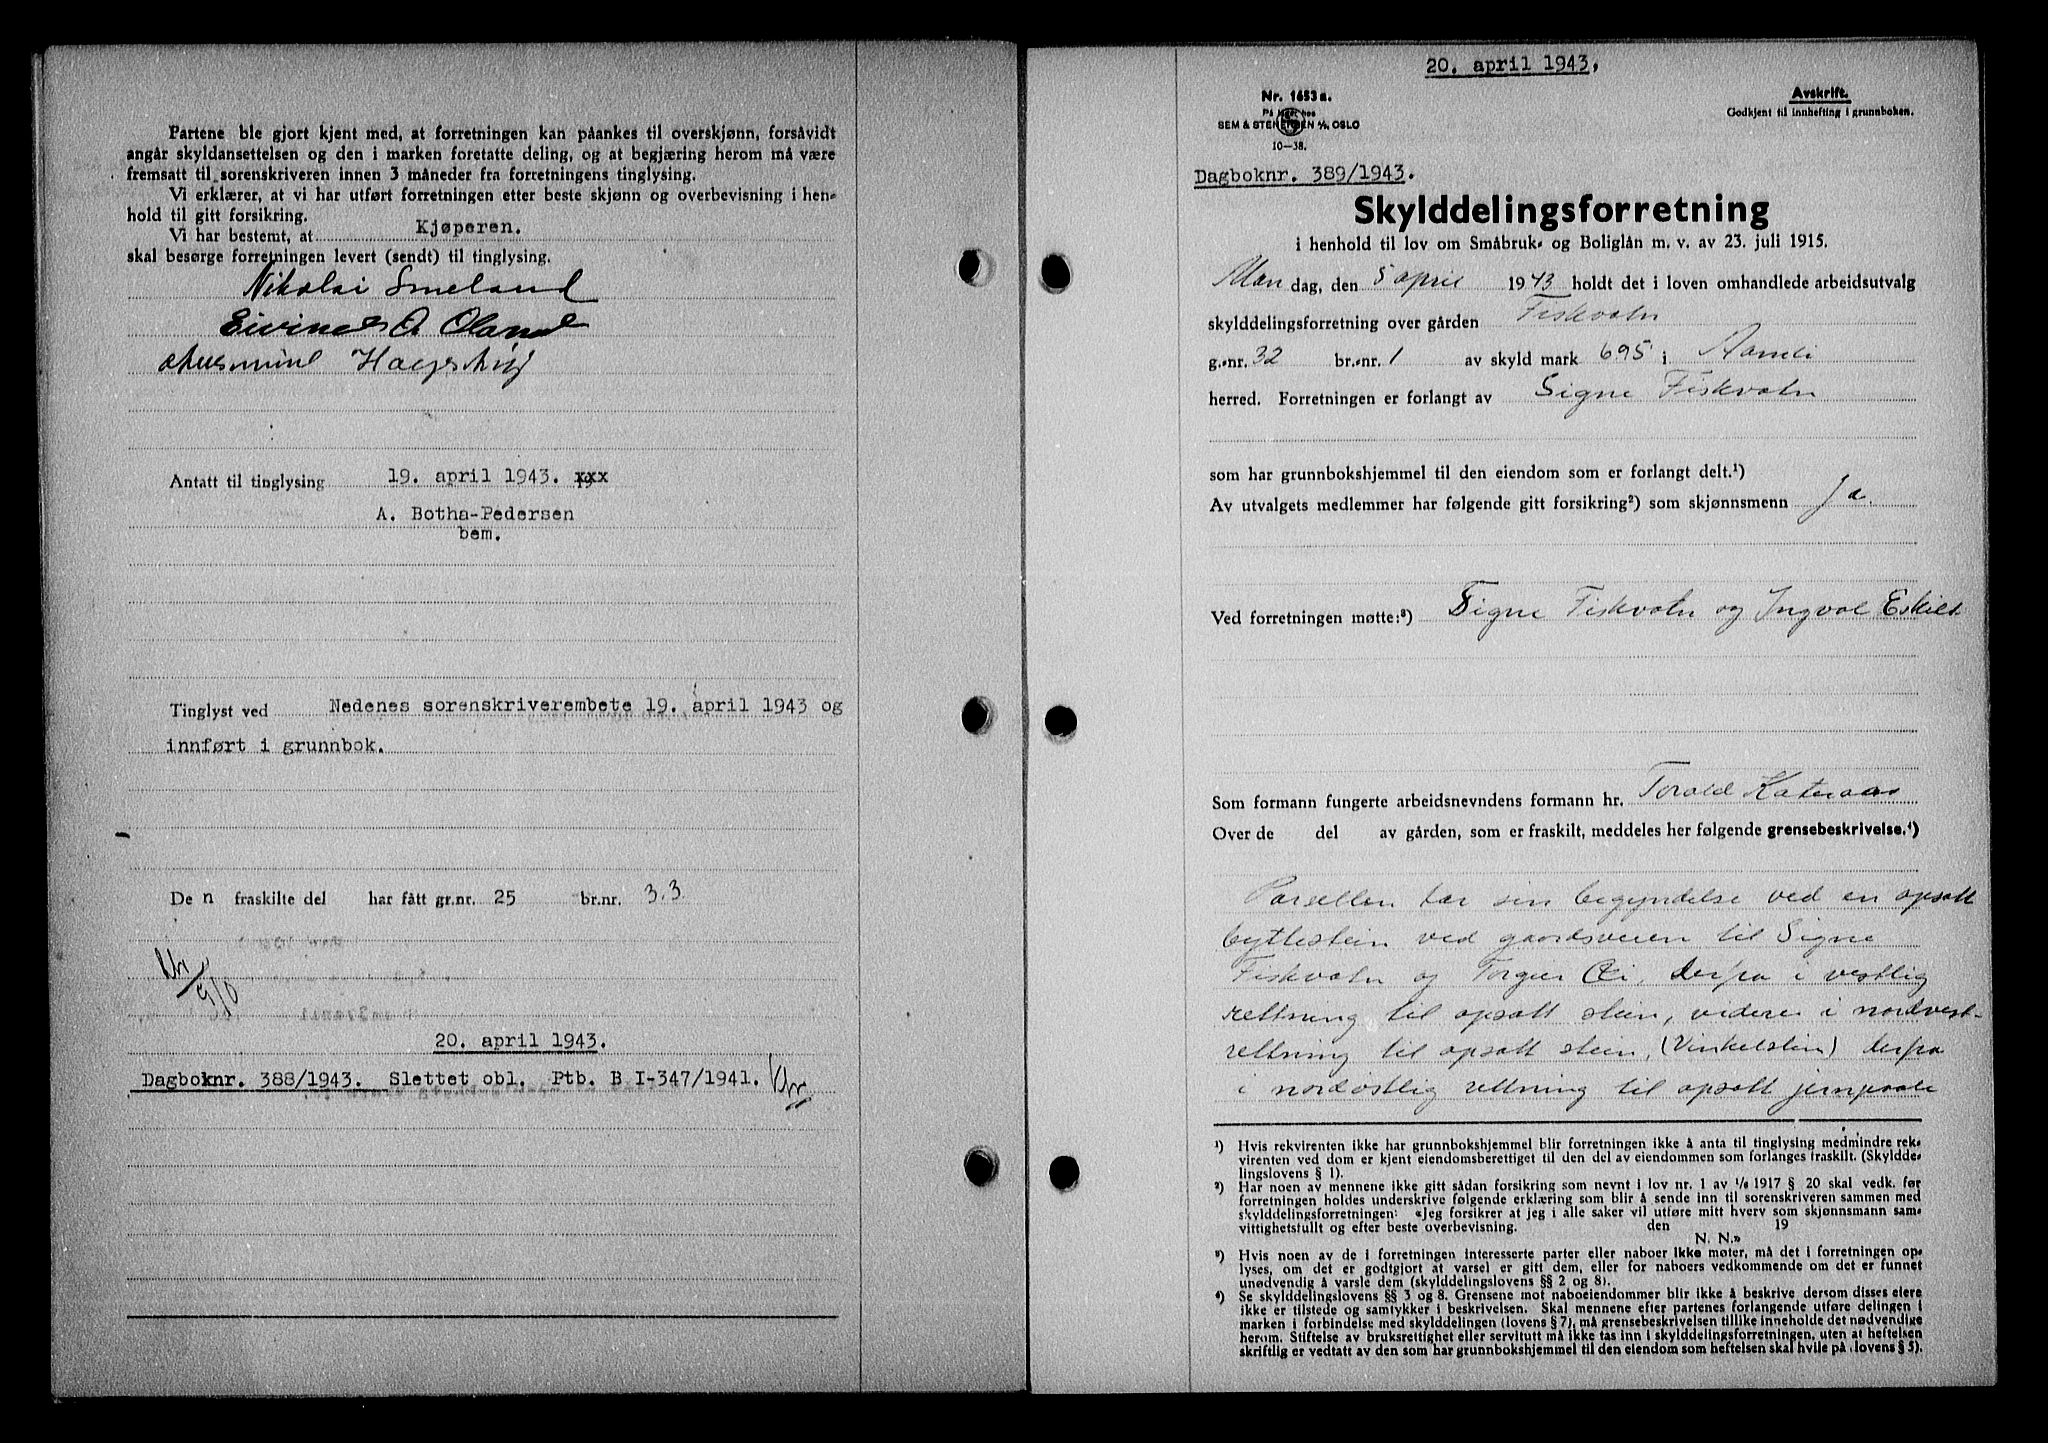 Partene ble gjort kjent med, at forretningen kan påankes til overskjønn, forsåvidt
angår skyldansettelsen og den i marken foretatte deling, og at begjæring herom må være
fremsatt til sorenskriveren innen 3 måneder fra forretningens tinglysing.
Vi erklærer, at vi har utført forretningen etter beste skjønn og overbevisning i hen-
hold til gitt forsikring.
Vi har bestemt, at Kjøperen.
skal besørge forretningen levert (sendt) til tinglysing.
Nikolai Smeland
Eivind O Oland
Antatt til tinglysing 19. april 1943. 19xxx
A. Botha-Pedersen
bem.
Tinglyst ved Nedenes sorenskriverembete 19. april 1943 og
innført i grunnbok.
De n fraskilte del har fått gr.nr. 25 br.nr. 33
20. april 1943.
Dagboknr. 388/1943. Slettet obl. Ptb. B I-347/1941.
20. april 1943,
Nr. 1653a.
På lager hos
SEM & STENERSEN A/S, OSLO
10—38.
Avskrift.
Godkjent til innhefting i grunnboken.
Dagboknr. 389/1943.
Skylddelingsforretning
i henhold til lov om Småbruk- og Boliglån m. v. av 23. juli 1915.
Man dag, den 5 april 1943 holdt det i loven omhandlede arbeidsutvalg
skylddelingsforretning over gården Fiskvatn
g.-nr. 32 br.-nr. 1 av skyld mark 695 i Aamli
herred. Forretningen er forlangt av Signe Fiskvatn
som har grunnbokshjemmel til den eiendom som er forlangt delt.¹)
Av utvalgets medlemmer har følgende gitt forsikring²) som skjønnsmenn Ja.
Ved forretningen møtte:³) Signe Fiskvatn og Ingvol Eskilt
Som formann fungerte arbeidsnevndens formann hr. Torald Kateraas
Over de del av gården, som er fraskilt, meddeles her følgende grensebeskrivelse.⁴)
Parsellen tar sin begyndelse ved en opsatt
byttestein ved gaardsveien til Signe
Fiskvatn og Torgeir Øi, derfra i vestlig
rettning til opsatt stein, videre i nordvest-
rettning til opsatt stein, (Vinkelstein) derfra
i nordøstlig rettning til opsatt jernpaale
¹) Hvis rekvirenten ikke har grunnbokshjemmel blir forretningen ikke å anta til tinglysing medmindre rek-
virenten ved dom er kjent eiendomsberettiget til den del av eiendommen som forlanges fraskilt. (Skyldde-
lingslovens § 1).
²) Har noen av mennene ikke gitt sådan forsikring som nevnt i lov nr. 1 av 1/6 1917 § 20 skal vedk. før
forretningen holdes underskrive følgende erklæring som blir å sende inn til sorenskriveren sammen med
skylddelingsforretningen: «Jeg forsikrer at jeg i alle saker vil utføre mitt hverv som skjønnsmann sam-
vittighetsfullt og efter beste overbevisning. den 19
N. N.»
³) Hvis noen av de i forretningen interesserte parter eller naboer ikke møter, må det i forretningen op-
lyses, om det er godtgjort at varsel er gitt dem, eller for naboers vedkommende om det er funnet
unødvendig å varsle dem (skylddelingslovens §§ 2 og 8).
⁴) Se skylddelingslovens §§ 3 og 8. Grensene mot naboeiendommer blir ikke å beskrive dersom disses eiere
ikke er tilstede og samtykker i beskrivelsen. Skal mennene efter partenes forlangende utføre delingen i
marken i forbindelse med skylddelingen (lovens § 7), må grensebeskrivelsen tillike inneholde det nødvendige
herom. Stiftelse av bruksrettighet eller servitutt må ikke tas inn i skylddelingsforretningen, uten at heftelsen
skriftlig er vedtatt av den som har grunnbokshjemmel til den eiendom som heftelsen skal hvile på (lovens § 5).